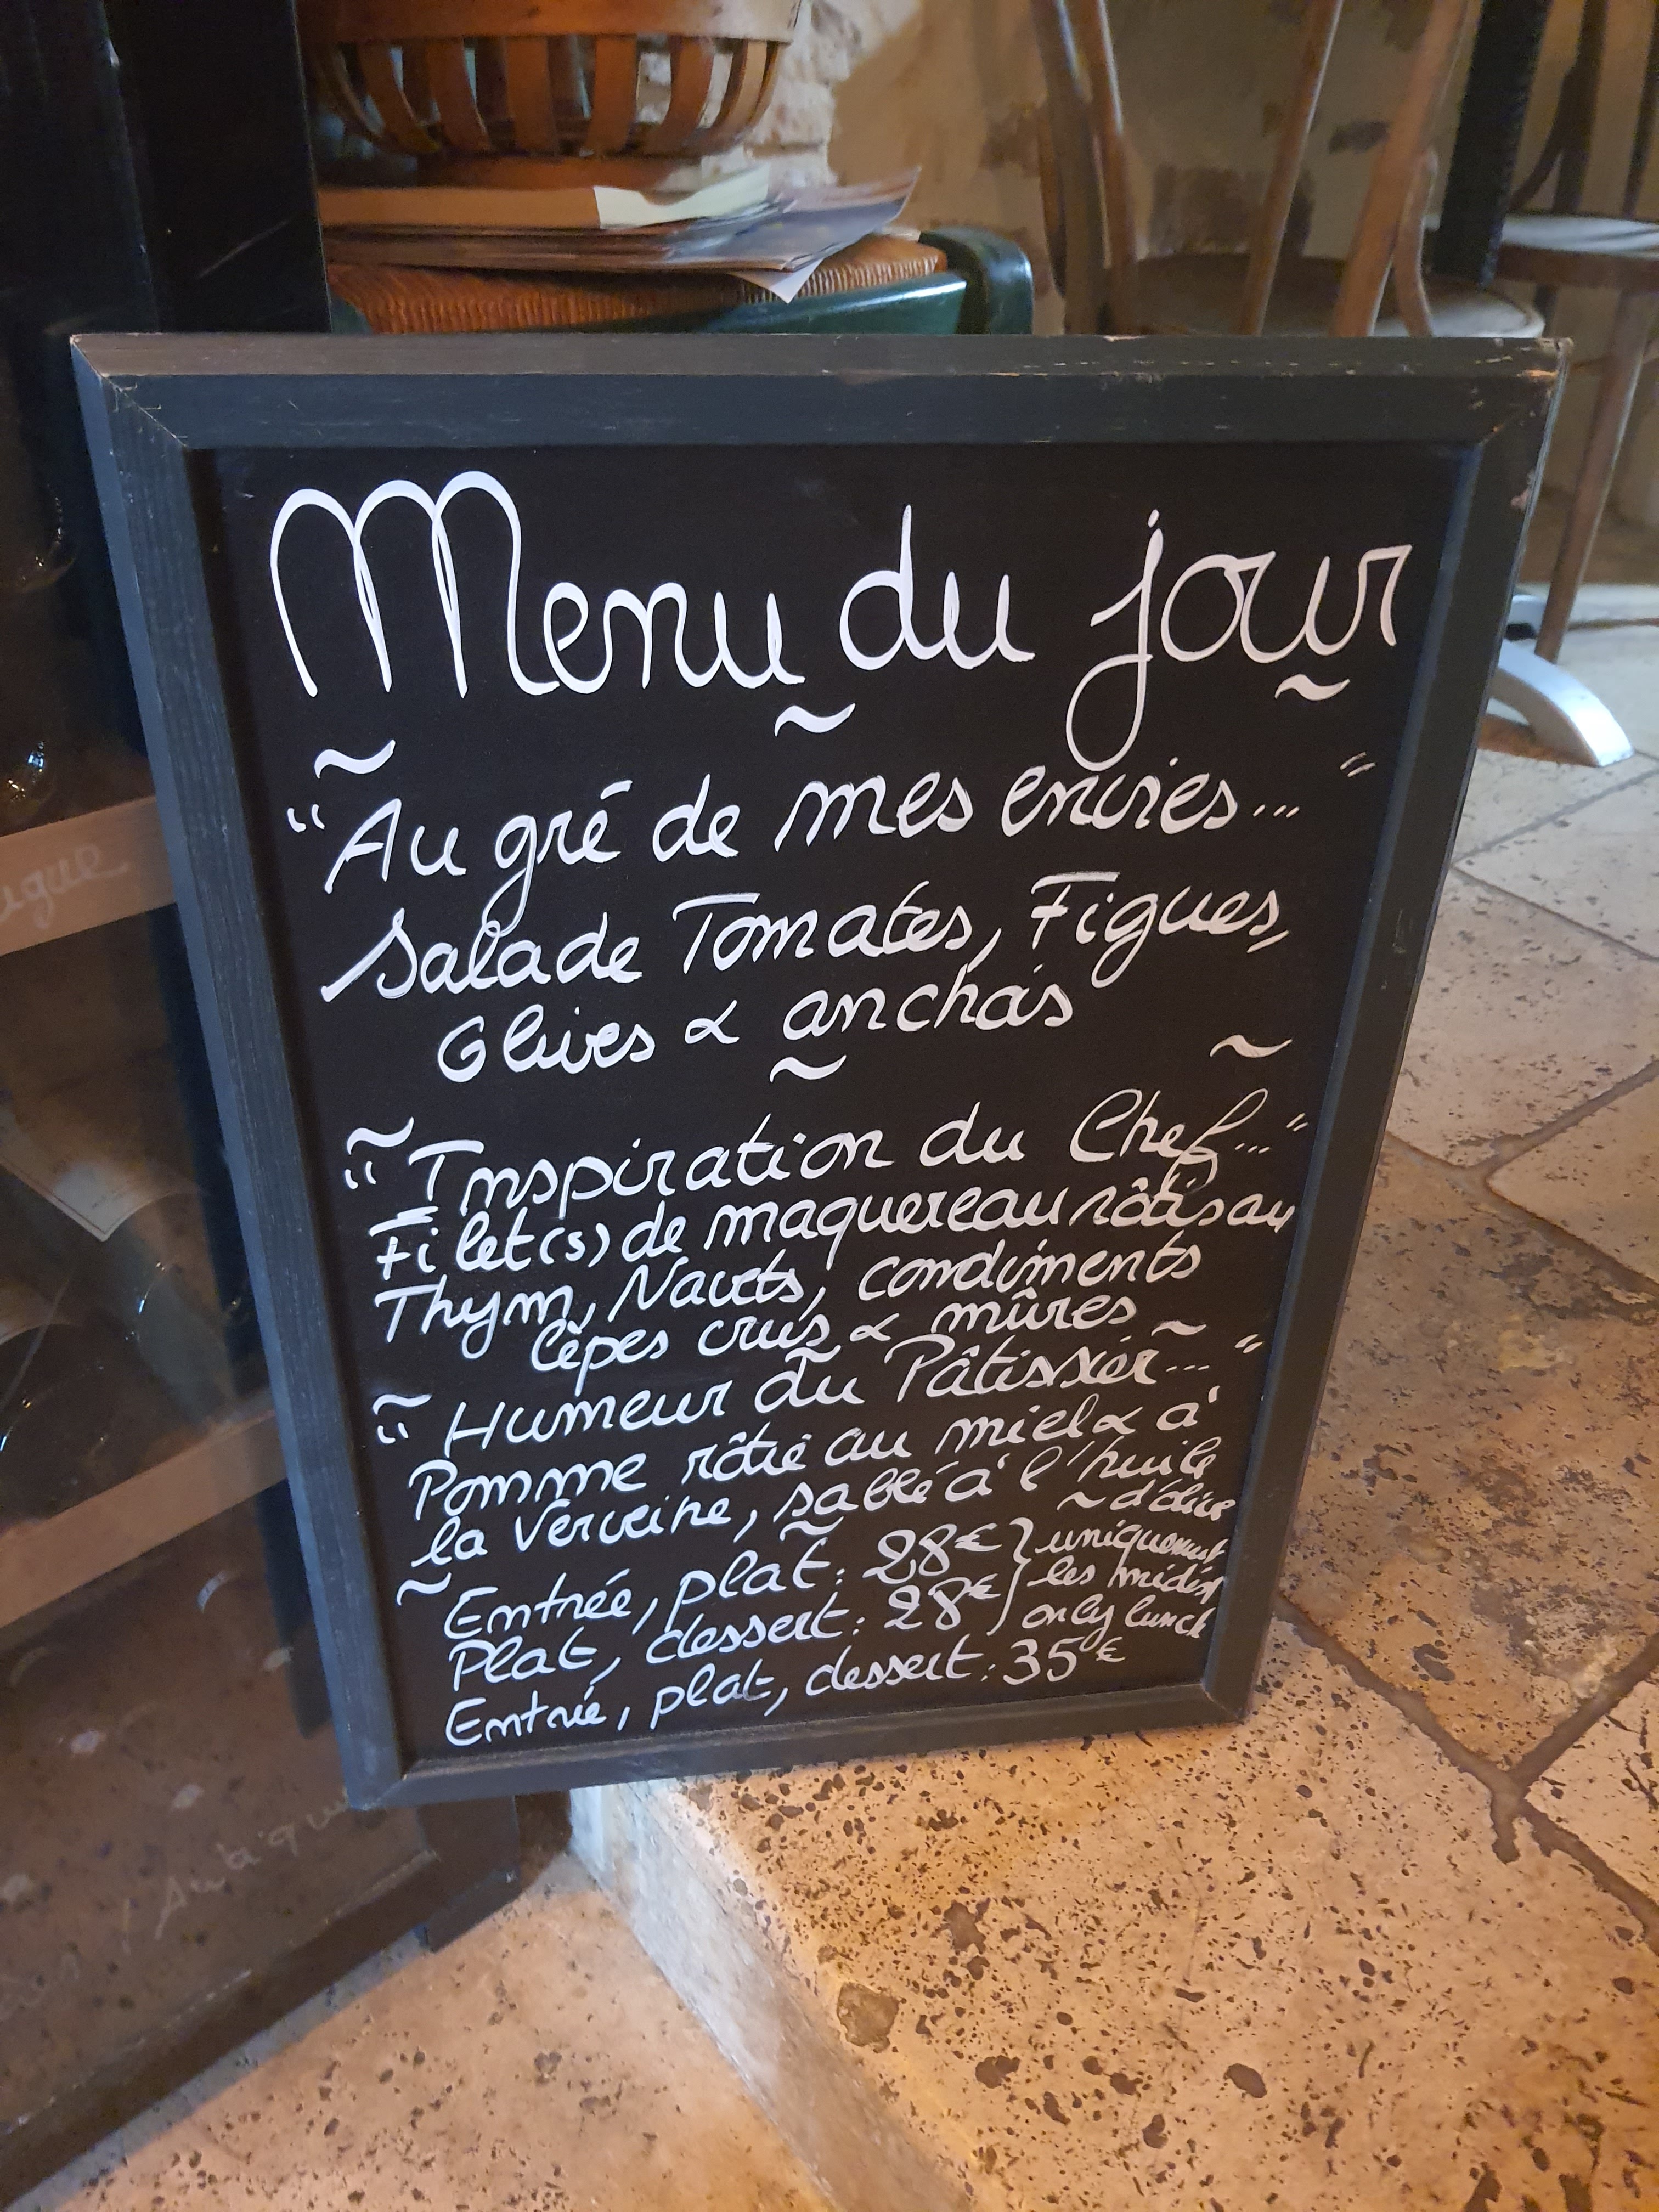 Menu du jour
~ ~ ~
"Au gré de mes envies... "
Salade Tomates, Figues,
Olives & anchois
~ ~
~
"Inspiration du Chef..."
Filet(s) de maquereau rôtis au
Thym, Navets, condiments
Cèpes crus & mûres
~ ~ ~
"Humeur du Pâtissier... "
Pomme rôtie au miel & à
la Verveine, sablé à l'huile
~ ~ d'olive
~
Entrée, plat: 28€ } uniquement
Plat, dessert: 28€ } les midis
only lunch
Entrée, plat, dessert: 35€